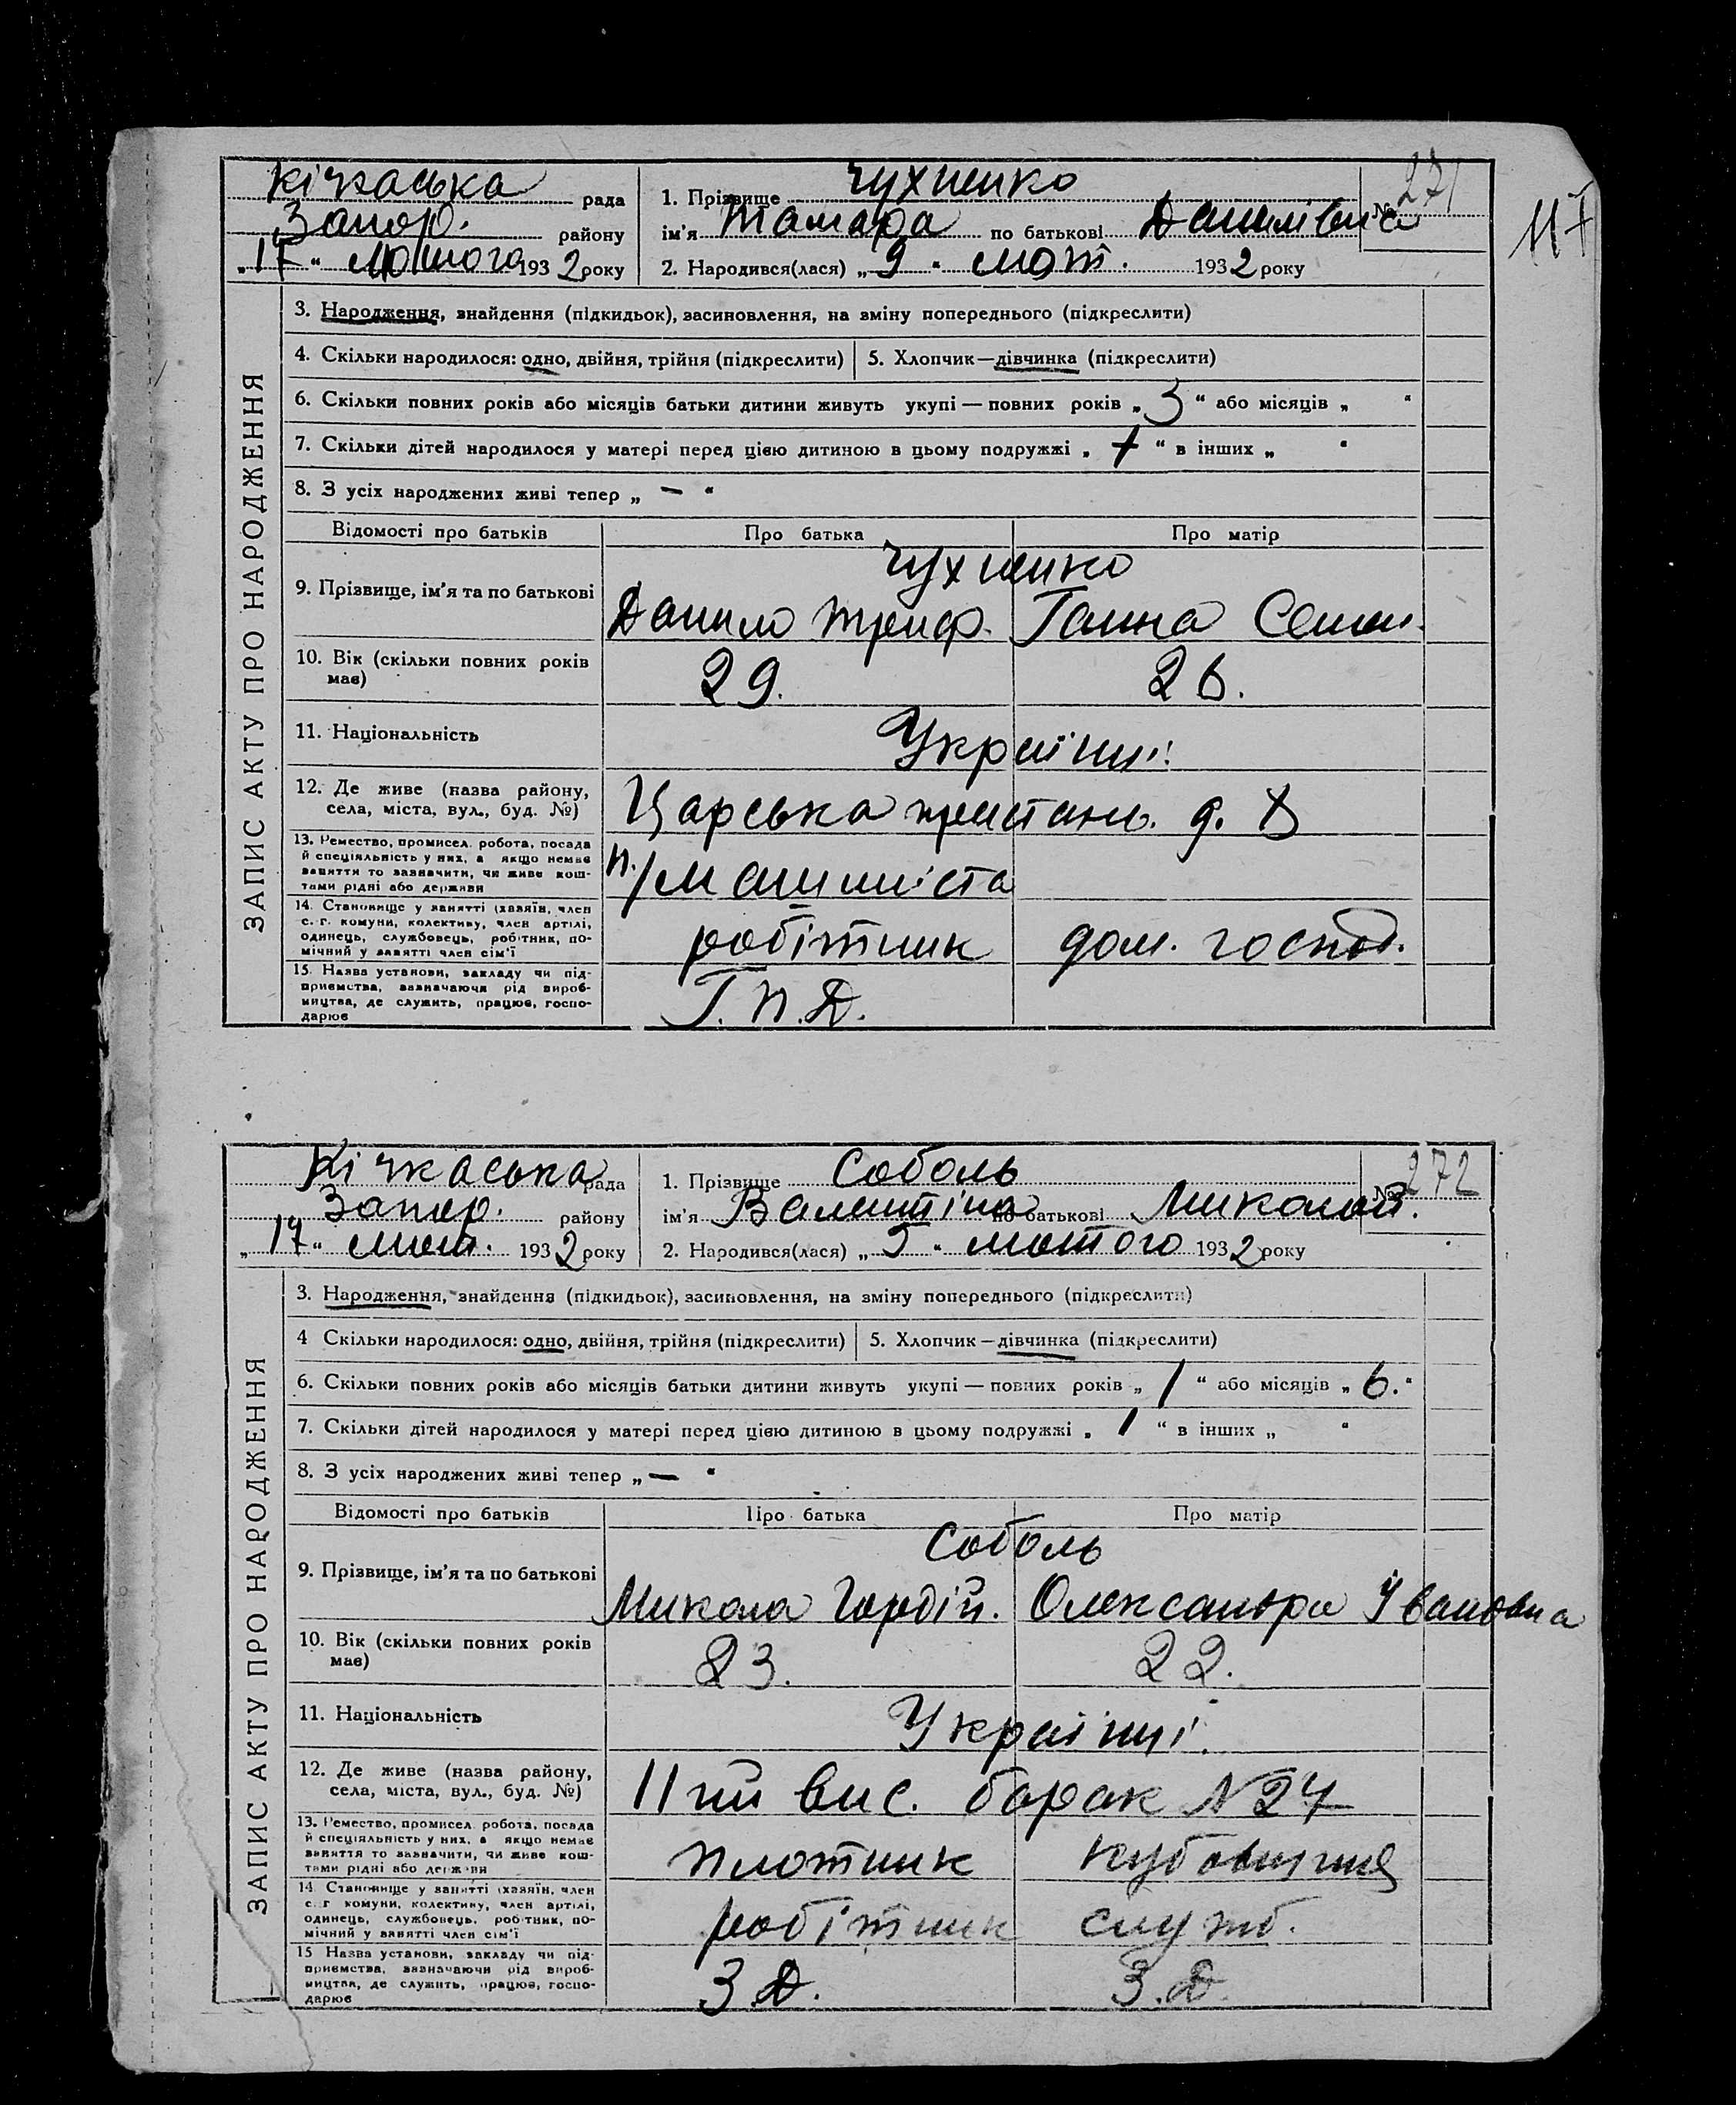 117
Кічкаська рада
Запор. району
„17“ лютого 1932 року
1. Прізвище Чухненко
№ 271
ім'я Тамара по батькові Данилівна
2. Народився(лася) „9“ лют. 1932 року
ЗАПИС АКТУ ПРО НАРОДЖЕННЯ
3. Народження, знайдення (підкидьок), засиновлення, на зміну попереднього (підкреслити)
4. Скільки народилося: одно, двійня, трійня (підкреслити) 5. Хлопчик—дівчинка (підкреслити)
6. Скільки повних років або місяців батьки дитини живуть укупі — повних років „3“ або місяців „ “
7. Скільки дітей народилося у матері перед цією дитиною в цьому подружжі „ “ в інших „ “
8. З усіх народжених живі тепер „ — “
Відомості про батьків Про батька Про матір
Чухненко
9. Прізвище, ім'я та по батькові Данило Триф. Ганна Семен.
10. Вік (скільки повних років має) 29. 26.
11. Національність Українці.
12. Де живе (назва району, села, міста, вул., буд. №) Царська пристань. д.
13. Ремество, промисел. робота, посада й спеціяльність у них, а якщо немає заняття то зазначити, чи живе коштами рідні або держави п./машиніста
14. Становище у занятті (хазяїн, член с.-г. комуни, колективу, член артілі, одинець, службовець, робітник, помічний у занятті член сім'ї робітник дом. господ.
15. Назва установи, закладу чи підприємства, зазначаючи рід виробництва, де служить, працює, господарює Г.П.Д.
Кічкаська рада
Запор. району
„17“ лют. 1932 року
1. Прізвище Соболь
№ 272
ім'я Валентіна по батькові Миколай.
2. Народився(лася) „5“ лютого 1932 року
ЗАПИС АКТУ ПРО НАРОДЖЕННЯ
3. Народження, знайдення (підкидьок), засиновлення, на зміну попереднього (підкреслити)
4 Скільки народилося: одно, двійня, трійня (підкреслити) 5. Хлопчик—дівчинка (підкреслити)
6. Скільки повних років або місяців батьки дитини живуть укупі — повних років „1“ або місяців „6.“
7. Скільки дітей народилося у матері перед цією дитиною в цьому подружжі „1“ в інших „ “
8. З усіх народжених живі тепер „ — “
Відомості про батьків Про батька Про матір
Соболь
9. Прізвище, ім'я та по батькові Микола Гордій. Олександра Івановна
10. Вік (скільки повних років має) 23. 22.
11. Національність Українці.
12. Де живе (назва району, села, міста, вул., буд. №) 11 вис. барак N 24
13. Ремество, промисел. робота, посада й спеціяльність у них, а якщо немає заняття то зазначити, чи живе коштами рідні або держави плотник кубовщиця
14. Становище у занятті (хазяїн, член с.-г. комуни, колективу, член артілі, одинець, службовець, робітник, помічний у занятті член сім'ї робітник служб.
15 Назва установи, закладу чи підприємства, зазначаючи рід виробництва, де служить, працює, господарює З.Д. З.Д.